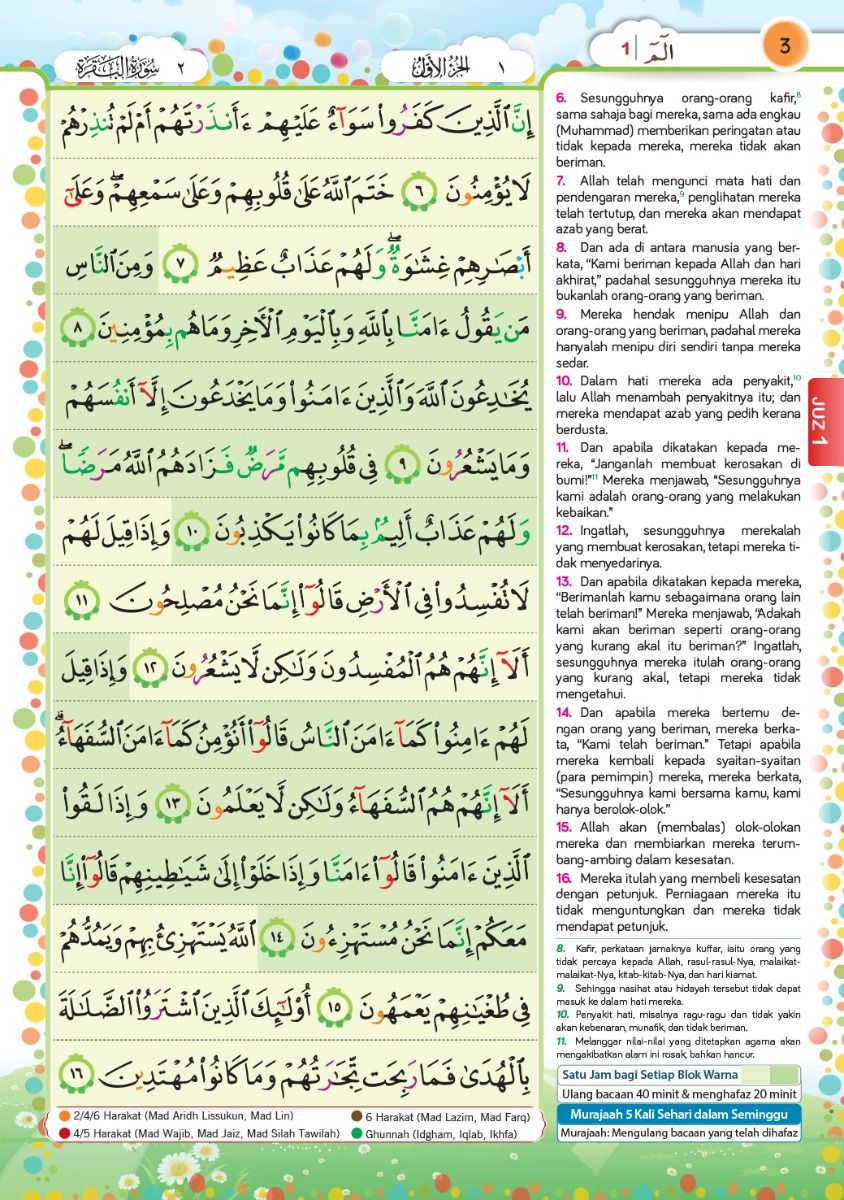 ٢ سُورَةُ البَقَرَة
الجُزْءُ الأَوَّلُ ١
1 | الٓمٓ
3
إِنَّ ٱلَّذِينَ كَفَرُوا۟ سَوَآءٌ عَلَيْهِمْ ءَأَنذَرْتَهُمْ أَمْ لَمْ تُنذِرْهُمْ
لَا يُؤْمِنُونَ ٦ خَتَمَ ٱللَّهُ عَلَىٰ قُلُوبِهِمْ وَعَلَىٰ سَمْعِهِمْ ۖ وَعَلَىٰٓ
أَبْصَٰرِهِمْ غِشَٰوَةٌ ۖ وَلَهُمْ عَذَابٌ عَظِيمٌ ٧ وَمِنَ ٱلنَّاسِ
مَن يَقُولُ ءَامَنَّا بِٱللَّهِ وَبِٱلْيَوْمِ ٱلْءَاخِرِ وَمَا هُم بِمُؤْمِنِينَ ٨
يُخَٰدِعُونَ ٱللَّهَ وَٱلَّذِينَ ءَامَنُوا۟ وَمَا يَخْدَعُونَ إِلَّآ أَنفُسَهُمْ
وَمَا يَشْعُرُونَ ٩ فِى قُلُوبِهِم مَّرَضٌ فَزَادَهُمُ ٱللَّهُ مَرَضًا ۖ
وَلَهُمْ عَذَابٌ أَلِيمٌۢ بِمَا كَانُوا۟ يَكْذِبُونَ ١٠ وَإِذَا قِيلَ لَهُمْ
لَا تُفْسِدُوا۟ فِى ٱلْأَرْضِ قَالُوٓا۟ إِنَّمَا نَحْنُ مُصْلِحُونَ ١١
أَلَآ إِنَّهُمْ هُمُ ٱلْمُفْسِدُونَ وَلَٰكِن لَّا يَشْعُرُونَ ١٢ وَإِذَا قِيلَ
لَهُمْ ءَامِنُوا۟ كَمَآ ءَامَنَ ٱلنَّاسُ قَالُوٓا۟ أَنُؤْمِنُ كَمَآ ءَامَنَ ٱلسُّفَهَآءُ ۗ
أَلَآ إِنَّهُمْ هُمُ ٱلسُّفَهَآءُ وَلَٰكِن لَّا يَعْلَمُونَ ١٣ وَإِذَا لَقُوا۟
ٱلَّذِينَ ءَامَنُوا۟ قَالُوٓا۟ ءَامَنَّا وَإِذَا خَلَوْا۟ إِلَىٰ شَيَٰطِينِهِمْ قَالُوٓا۟ إِنَّا
مَعَكُمْ إِنَّمَا نَحْنُ مُسْتَهْزِءُونَ ١٤ ٱللَّهُ يَسْتَهْزِئُ بِهِمْ وَيَمُدُّهُمْ
فِى طُغْيَٰنِهِمْ يَعْمَهُونَ ١٥ أُو۟لَٰٓئِكَ ٱلَّذِينَ ٱشْتَرَوُا۟ ٱلضَّلَٰلَةَ
بِٱلْهُدَىٰ فَمَا رَبِحَت تِّجَٰرَتُهُمْ وَمَا كَانُوا۟ مُهْتَدِينَ ١٦
2/4/6 Harakat (Mad Aridh Lissukun, Mad Lin)
6 Harakat (Mad Lazim, Mad Farq)
4/5 Harakat (Mad Wajib, Mad Jaiz, Mad Silah Tawilah)
Ghunnah (Idgham, Iqlab, Ikhfa)
6. Sesungguhnya orang-orang kafir,⁸
sama sahaja bagi mereka, sama ada engkau
(Muhammad) memberikan peringatan atau
tidak kepada mereka, mereka tidak akan
beriman.
7. Allah telah mengunci mata hati dan
pendengaran mereka,⁹ penglihatan mereka
telah tertutup, dan mereka akan mendapat
azab yang berat.
8. Dan ada di antara manusia yang ber-
kata, “Kami beriman kepada Allah dan hari
akhirat,” padahal sesungguhnya mereka itu
bukanlah orang-orang yang beriman.
9. Mereka hendak menipu Allah dan
orang-orang yang beriman, padahal mereka
hanyalah menipu diri sendiri tanpa mereka
sedar.
10. Dalam hati mereka ada penyakit,¹⁰
lalu Allah menambah penyakitnya itu; dan
mereka mendapat azab yang pedih kerana
berdusta.
11. Dan apabila dikatakan kepada me-
reka, “Janganlah membuat kerosakan di
bumi!”¹¹ Mereka menjawab, “Sesungguhnya
kami adalah orang-orang yang melakukan
kebaikan.”
12. Ingatlah, sesungguhnya merekalah
yang membuat kerosakan, tetapi mereka ti-
dak menyedarinya.
13. Dan apabila dikatakan kepada mereka,
“Berimanlah kamu sebagaimana orang lain
telah beriman!” Mereka menjawab, “Adakah
kami akan beriman seperti orang-orang
yang kurang akal itu beriman?” Ingatlah,
sesungguhnya mereka itulah orang-orang
yang kurang akal, tetapi mereka tidak
mengetahui.
14. Dan apabila mereka bertemu de-
ngan orang yang beriman, mereka berka-
ta, “Kami telah beriman.” Tetapi apabila
mereka kembali kepada syaitan-syaitan
(para pemimpin) mereka, mereka berkata,
“Sesungguhnya kami bersama kamu, kami
hanya berolok-olok.”
15. Allah akan (membalas) olok-olokan
mereka dan membiarkan mereka terum-
bang-ambing dalam kesesatan.
16. Mereka itulah yang membeli kesesatan
dengan petunjuk. Perniagaan mereka itu
tidak menguntungkan dan mereka tidak
mendapat petunjuk.
8. Kafir, perkataan jamaknya kuffar, iaitu orang yang
tidak percaya kepada Allah, rasul-rasul-Nya, malaikat-
malaikat-Nya, kitab-kitab-Nya, dan hari kiamat.
9. Sehingga nasihat atau hidayah tersebut tidak dapat
masuk ke dalam hati mereka.
10. Penyakit hati, misalnya ragu-ragu dan tidak yakin
akan kebenaran, munafik, dan tidak beriman.
11. Melanggar nilai-nilai yang ditetapkan agama akan
mengakibatkan alam ini rosak, bahkan hancur.
Satu Jam bagi Setiap Blok Warna
Ulang bacaan 40 minit & menghafaz 20 minit
Murajaah 5 Kali Sehari dalam Seminggu
Murajaah: Mengulang bacaan yang telah dihafaz
JUZ 1